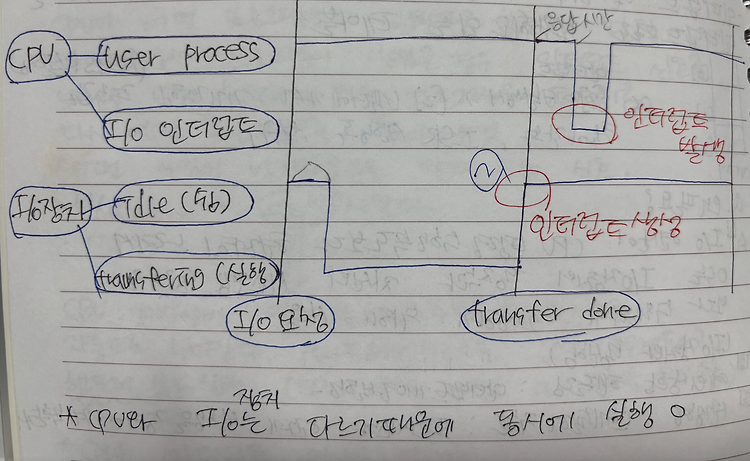 응답시간
CPU
user process
I/O 인터럽트
인터럽트
발생
I/O장치
idle (쉼)
인터럽트 생성
transfering (실행)
I/O 요청
transfer done
* CPU와 I/O는 장치 다르기때문에 동시에 실행 O